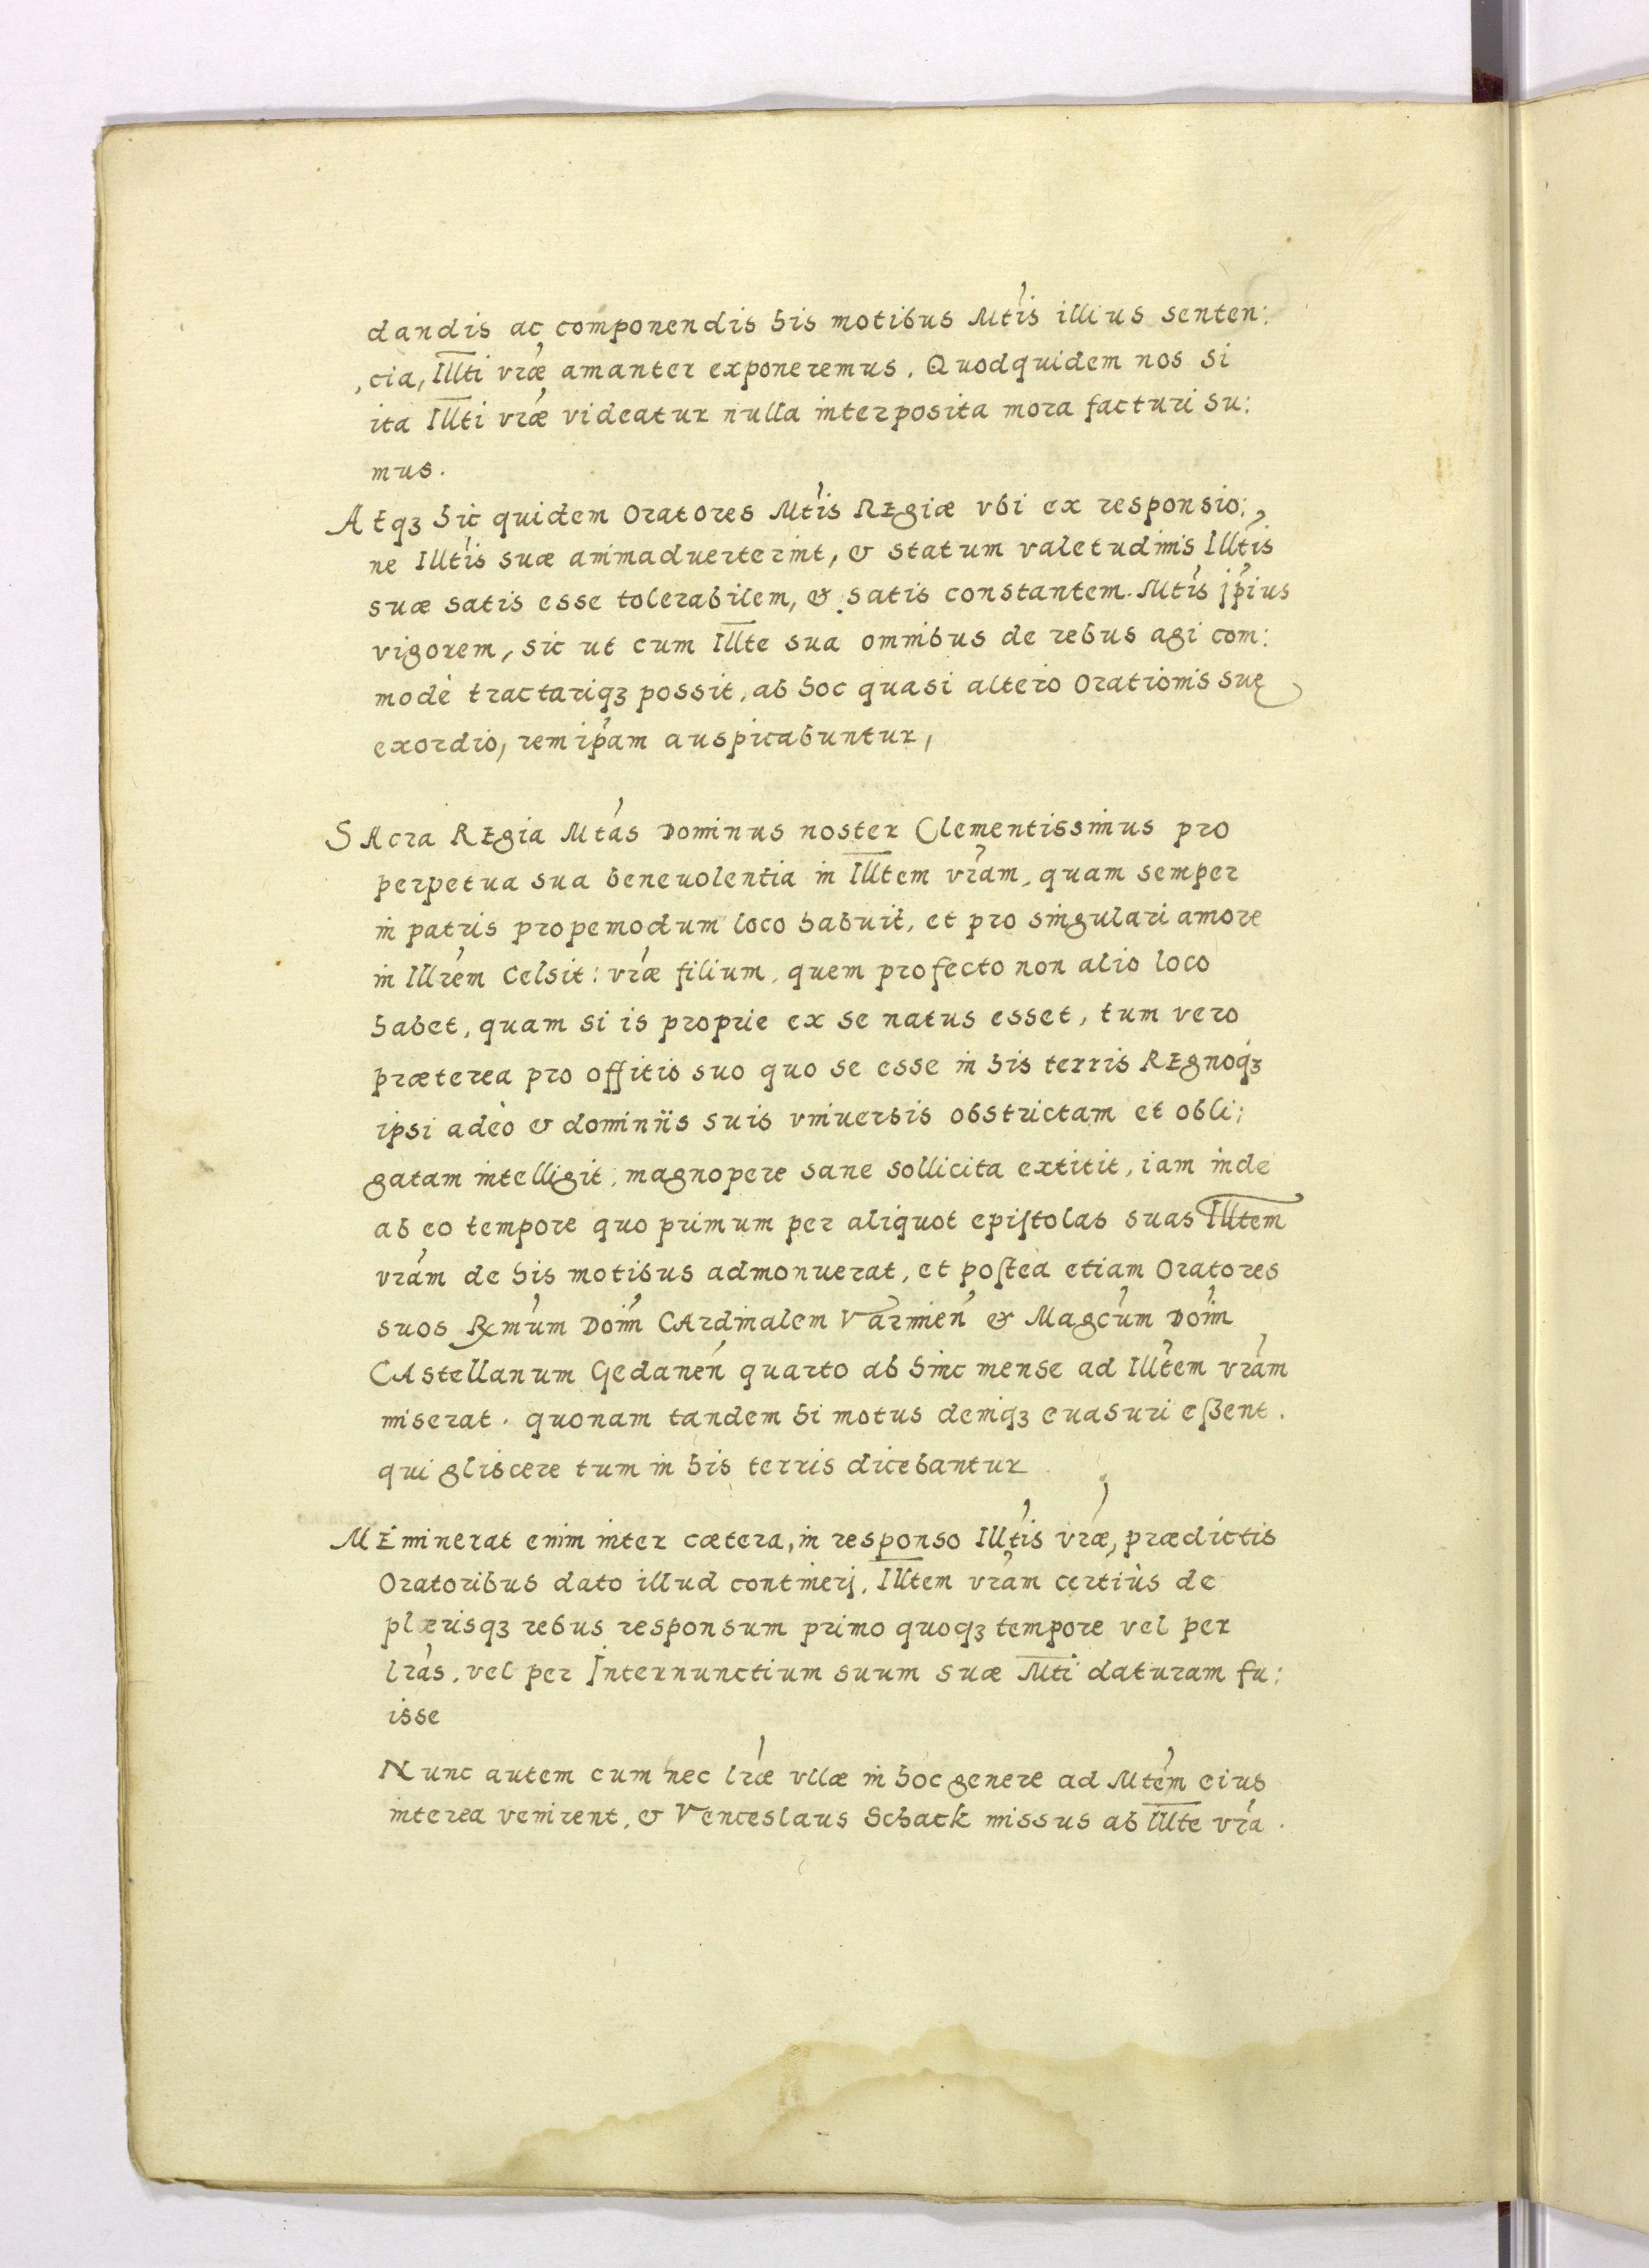 dandis ac componendis his motibus Mtis illius senten:
cia, Illti vrae amanter exponeremus. Quodquidem nos si
ita Illti vrae videatur nulla interposita mora facturi su:
mus.
AEqꝫ hic quidem Oratores Mtis REgiæ vbi ex responsio:
ne Illtis suæ animaduerterint, & statum valetudinis Illtis
suæ satis esse tolerabilem, & satis constantem Mtis jpius
vigorem, sic ut cum Illte sua omnibus de rebus agi com:
modè tractariqꝫ possit, ab hoc quasi altero Orationis suę
exordio, rem ipam auspicabuntur,
SAcra REgia Mtas Dominus noster Clementissimus pro
perpetua sua beneuolentia in Illtem vram, quam semper
in patris propemodum loco habuit, et pro singulari amore
in Illrem Celsit: vræ filium, quem profecto non alio loco
habet, quam si is proprie ex se natus esset, tum vero
præterea pro offitio suo quo se esse in his terris REgnoqꝫ
ipsi adeò & dominiis suis vniuersis obstrictam et obli:
gatam intelligit, magnopere sane sollicita extitit, iam inde
ab eo tempore quo primum per aliquot epistolas suas Illtem
vram de his motibus admonuerat, et postea etiam Oratores
suos Rmum Doim CArdinalem Varmien & Magcum Doim
CAstellanum Gedanen quarto ab hinc mense ad Illtem vram
miserat. quonam tandem hi motus deniqꝫ euasuri eßent.
qui gliscere tum in his terris dicebantur
MEminerat enim inter cætera, in responso Illtis vræ, prædictis
Oratoribus dato illud contineri, Illtem vram certiùs de
plærisqꝫ rebus responsum primo quoqꝫ tempore vel per
lras, vel per Internunctium suum suæ Mti daturam fu:
isse
Nunc autem cum nec lræ vllæ in hoc genere ad Mtem eius
interea venirent, & Venceslaus Schack missus ab Illte vra.